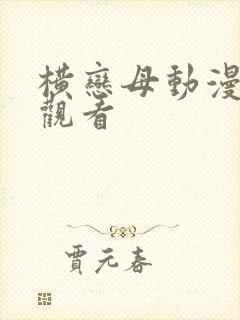 橫戀母動漫
觀看
賈元春